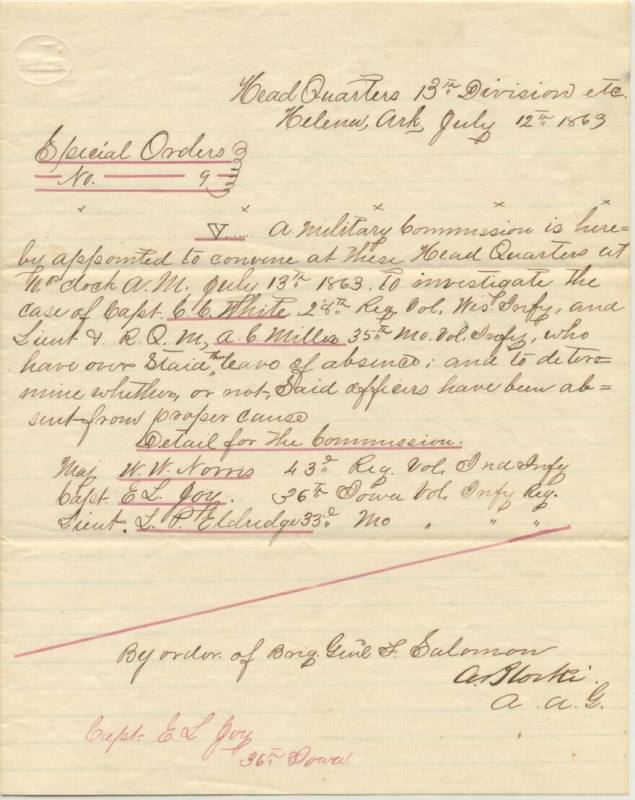 Head Quarters 13th Division etc.
Helena, Ark, July 12th 1863
Special Orders
No. 9
x x x x
V.... A Military Commission is here=
by appointed to convene at these Head Quarters at
clock A.M. July 13th 1863. to investigate the
case of Capt. C. C. White, 28th Reg. Vol. Wis. Infy, and
Lieut & R. Q. M, A. C Miller 35th Mo. Vol. Infy, who
have over Staid their leave of absence; and to deter=
mine whether, or not, Said officers have been ab=
sent from proper cause
Detail for the Commission.
Maj W. W. Norris 43d Reg. Vol. Ind Infy
Capt. E L. Joy. 36th Iowa Vol. Infy Reg.
Lieut. L. P. Eldridge 33d Mo " " "
By order of Brig. Genl F. Salomon
A. Blocki.
A. A. G.
Capt. E L Joy
36th Iowa